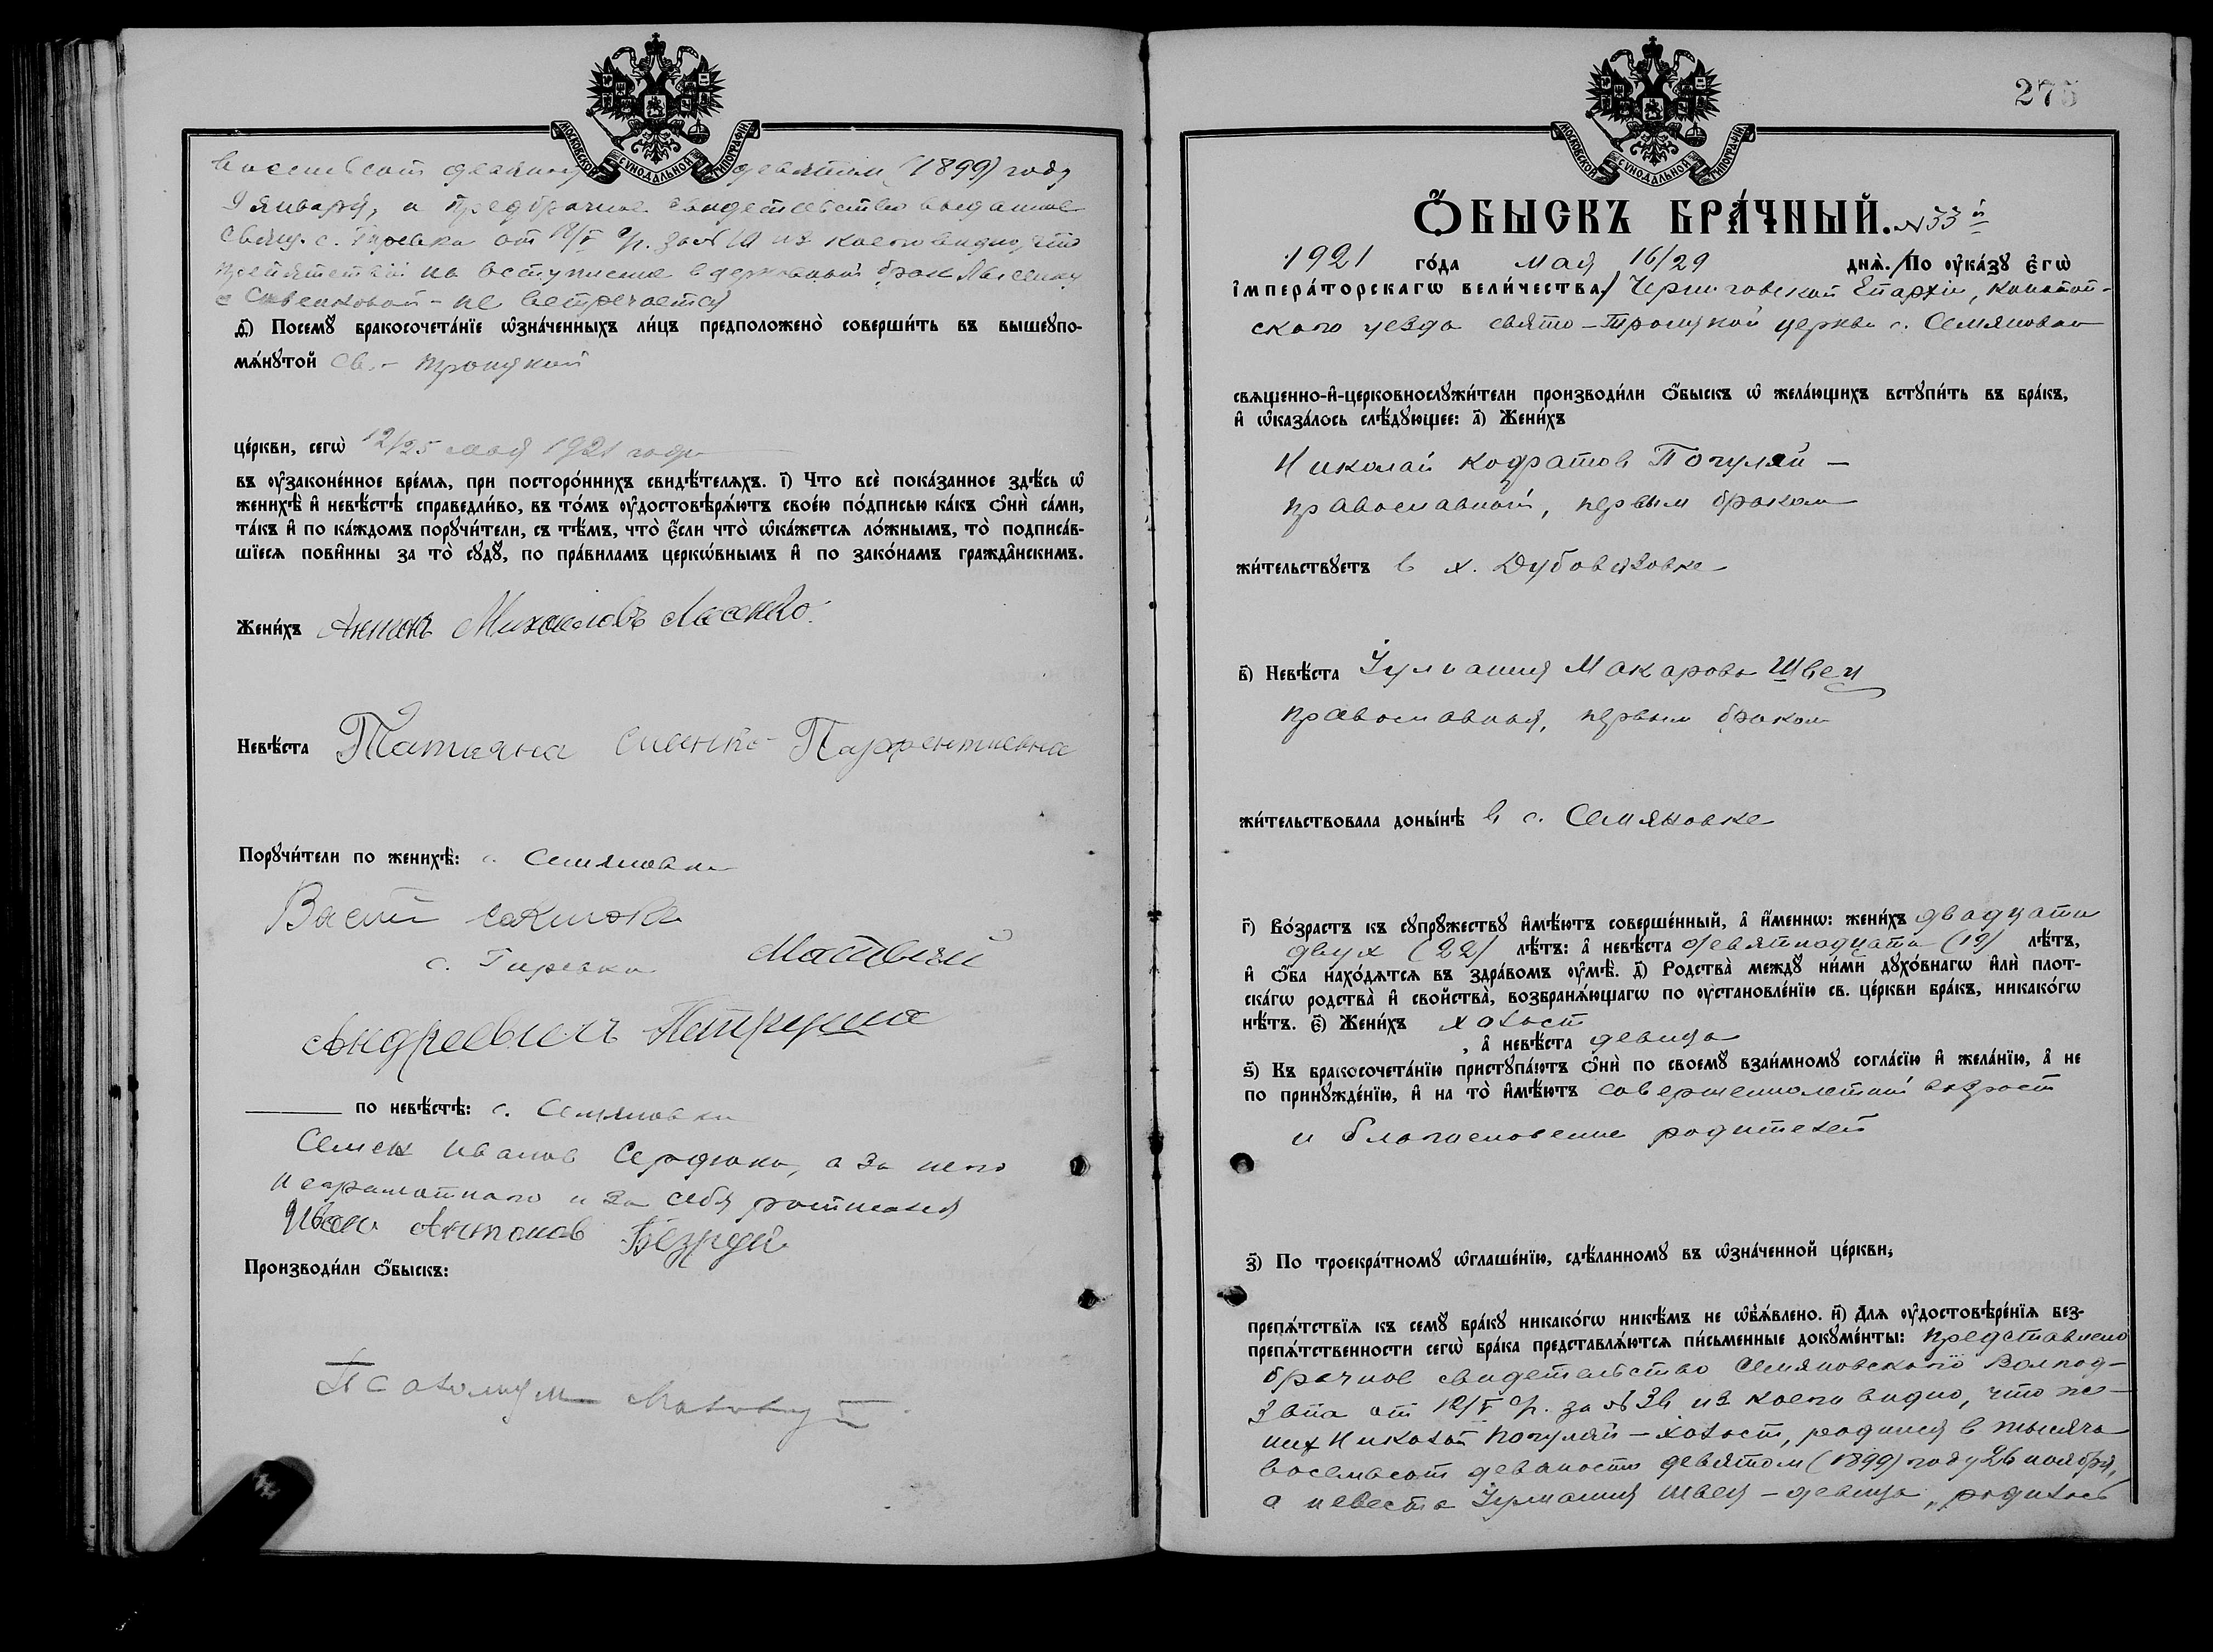 МОСКОВСКОЙ СѴНОДАЛЬНОЙ ТИПОГРАФІИ
девятом (1899) году
9 января, и предбрачное свидетельство выданное
свящ. с. Гиревки от 12/V с/г. за № 19 из коего видно, что
препятствий на вступление в церковный брак Лысенку
с Сивенковой - не встречается
ѳ҃) Посемꙋ̀ бракосочета́нїе ѡ҆зна́ченныхъ ли́цъ предположено̀ соверши́ть въ вышеꙋпо-
мѧ́нꙋтой Св. - Троицкой
це́ркви, сегѡ̀ 12/25 мая 1921 года
въ ᲂу҆законе́нное вре́мѧ, при посторо́ннихъ свидѣ́телѧхъ. і҃) Что всѐ пока́занное здѣ́сь ѡ҆
женихѣ̀ и҆ невѣ́стѣ справедли́во, въ то́мъ ᲂу҆достовѣрѧ́ютъ свое́ю по́дписью ка́къ ѻ҆нѝ са́ми,
та́къ и҆ по ка́ждомъ порꙋчи́тели, съ тѣ́мъ, что̀ є҆́сли что̀ ѡ҆ка́жетсѧ ло́жнымъ, то̀ подписа́в-
шїесѧ пови́нны за то̀ сꙋдꙋ̀, по пра́виламъ церкѡ́внымъ и҆ по зако́намъ гражда́нскимъ.
Жени́хъ Антонъ Михаиловъ Лысенко.
Невѣ́ста Татияна Сивенко Парфентиевна
Порꙋчи́тели по женихѣ̀: с. Семяновки
с. Гиревки Матвей
Андреевичъ Петруша
по невѣ́стѣ: с. Семяновки
Семен Иванов Сердюк, а за него
неграмотного и за себя росписался
Иван Антонов Безрядй
Производи́ли ѻ҆́быскъ:
275
МОСКОВСКОЙ СѴНОДАЛЬНОЙ ТИПОГРАФІИ
Ѻ҆́БЫСКЪ БРА́ЧНЫЙ. № 33й
1921 го́да мая 16/29 днѧ̀. /По ᲂу҆ка́зꙋ є҆гѡ̀
і҆мпера́торскагѡ вели́чества/ Черниговской Епархіи, Конотоп-
ского уезда свято-Троицкой церкви с. Семяновки
свѧще́нно-и҆-церковнослꙋжи́тели производи́ли ѻ҆́быскъ ѡ҆ жела́ющихъ встꙋпи́ть въ бра́къ,
и҆ ѡ҆каза́лось слѣ́дꙋющее: а҃) Жени́хъ
Николай Кодратов Погуляй -
православный, первым браком
жи́тельствꙋетъ в х. Дубовязовке
в҃) Невѣ́ста Иулиания Макарова Швец
православная, первым браком
жи́тельствовала доны́нѣ в с. Семяновке
г҃) Во́зрастъ къ сꙋпрꙋ́жествꙋ и҆мѣ́ютъ соверше́нный, а҆ и҆́меннѡ: жени́хъ двадцати
двух (22) лѣ́тъ: а҆ невѣ́ста девятнадцати (19) лѣ́тъ,
и҆ ѻ҆́ба нахо́дѧтсѧ въ здра́вомъ ᲂу҆мѣ̀. д҃) Родства̀ междꙋ̀ ни́ми дꙋхо́внагѡ и҆лѝ плот-
ска́гѡ родства̀ и҆ свойства̀, возбранѧ́ющагѡ по ᲂу҆становле́нїю св. це́ркви бра́къ, никако́гѡ
нѣ́тъ. є҃) Жени́хъ холост
, а҆ невѣ́ста девица
ѕ҃) Къ бракосочета́нїю пристꙋпа́ютъ ѻ҆нѝ по своемꙋ̀ взаи́мномꙋ согла́сїю и҆ жела́нїю, а҆ не
по принꙋжде́нїю, и҆ на то̀ и҆мѣ́ютъ совершеннолетний возраст
и благословение родителей
з҃) По троекра́тномꙋ ѡ҆глаше́нїю, сдѣ́ланномꙋ въ ѡ҆зна́ченной це́ркви,
препѧ́тствїѧ къ семꙋ̀ бра́кꙋ никако́гѡ никѣ́мъ не ѡ҆б̾ѧ́влено. и҃) Длѧ ᲂу҆достовѣре́нїѧ без-
препѧ́тственности сегѡ̀ бра́ка представлѧ́ютсѧ пи́сьменные докꙋме́нты: представлено
брачное свидетельство Семяновского Волпод-
от 12/V с/г. за № 36 из коего видно, что же-
них Николай Погуляй - холост, родился в тысяча
восемьсот девяносто девятом (1899) году 26 ноября,
а невеста Иулиания Швец - девица, родилась